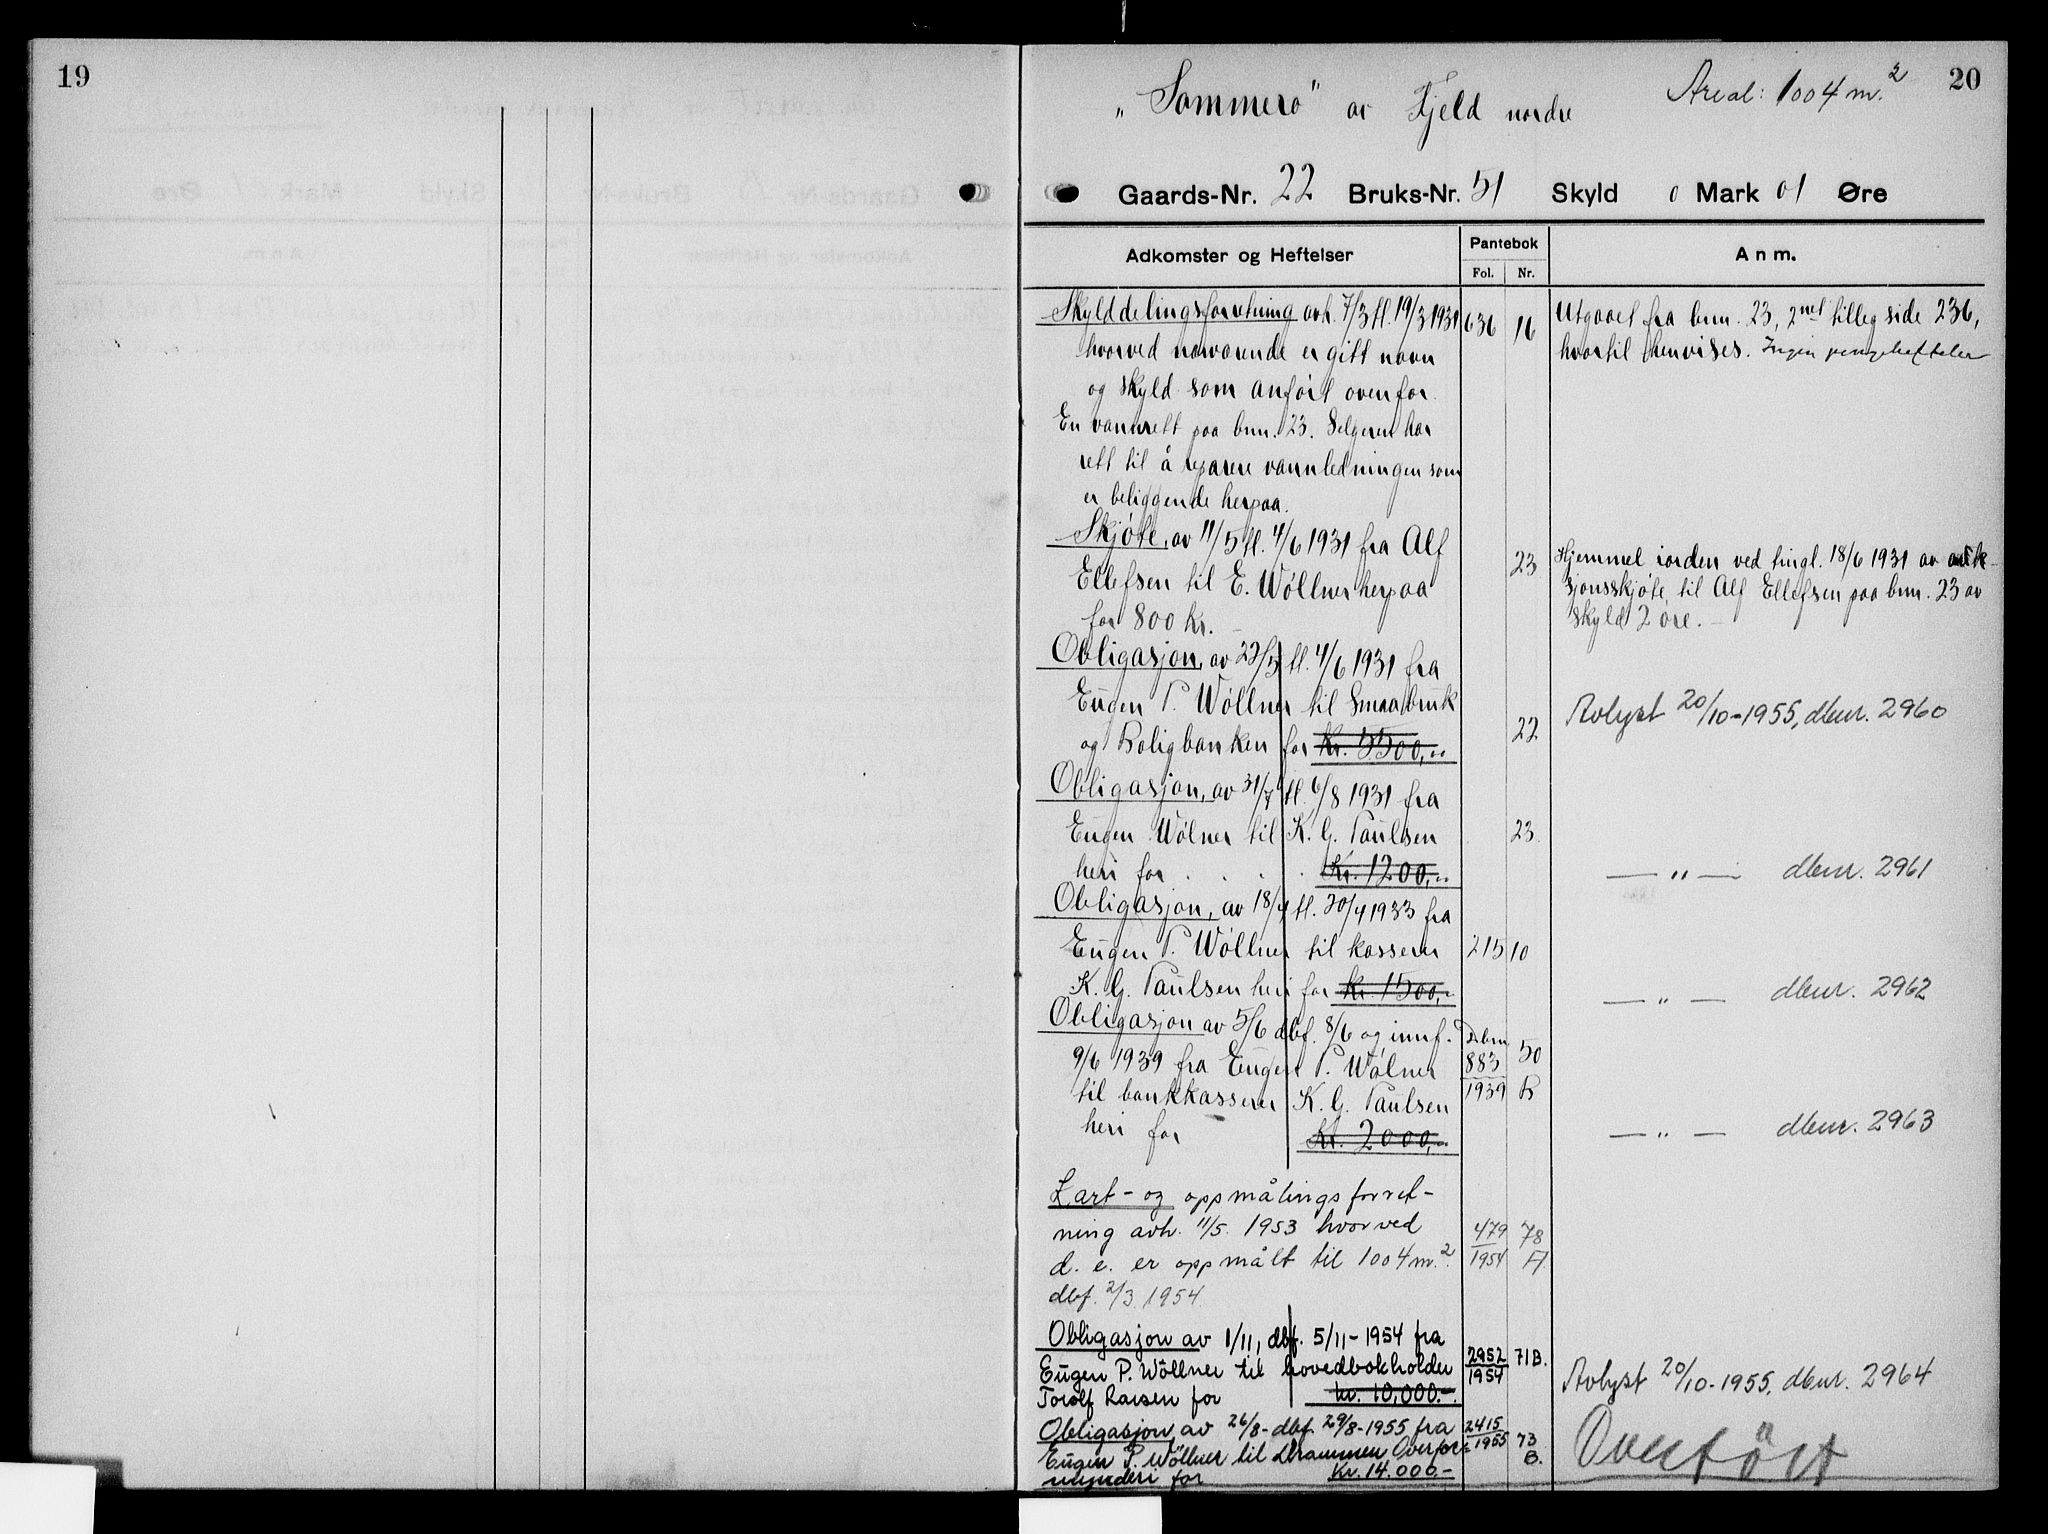 19
20
„Sommero" av Fjeld nordre
Areal: 1004 m.²
Gaards-Nr. 22 Bruks-Nr. 51 Skyld 0 Mark 01 Øre
Adkomster og Heftelser
Pantebok
Fol. Nr.
Anm.
Skylddelingsforretning avh. 7/3 tl. 19/3 1931 636 16
hvorved nærværende er gitt navn
og skyld som anført ovenfor.
En vannrett paa bnr. 23. Selgeren har
rett til å reparere vannledningen som
er beliggende herpaa.
Utgaaet fra bnr. 23, 2net tilleg side 236,
hvortil henvises. Ingen pengeheftelser
Skjøte, av 11/5 tl. 4/6 1931 fra Alf 23
Ellefsen til E. Wøllner herpaa
for 800 kr.
Hjemmel iorden ved tingl. 18/6 1931 av auk-
sjonsskjøte til Alf Ellefsen paa bnr. 23 av
skyld 2 øre.
Obligasjon, av 22/5 tl. 4/6 1931 fra
Eugen P. Wøllner til Smaabruk
og Boligbanken for Kr. 5500,- 22
Avlyst 20/10-1955, dbnr. 2960
Obligasjon, av 31/7 tl. 6/8 1931 fra
Eugen Wølner til K. G. Paulsen 23
heri for . . . . Kr. 1200,-
— " — dbnr. 2961
Obligasjon, av 18/4 tl. 20/4 1933 fra
Eugen P. Wøllner til kasserer 215 10
K. G. Paulsen heri for kr. 1500,-
— " — dbnr. 2962
Obligasjon av 5/6 dbf. 8/6 og innf. Dbnr
9/6 1939 fra Eugen P. Wølner 883 50
til bankkasserer K. G. Paulsen 1939 B
heri for Kr. 2000,-
— " — dbnr. 2963
Kart- og oppmålingsforret-
ning avh. 11/5. 1953 hvorved 479 78
d. e. er oppmålt til 1004 m.² 1954 A
dbf. 2/3. 1954.
Obligasjon av 1/11, dbf. 5/11-1954 fra
Eugen P. Wöllner til hovedbokholder 2952 71B.
Torolf Larsen for kr. 10.000.- 1954
Avlyst 20/10-1955, dbnr. 2964
Obligasjon av 26/8- dbf. 29/8-1955 fra 2415
Eugen P. Wöllner til Drammen Overfor- 1955 73
mynderi for Kr. 14.000.- B.
Overført